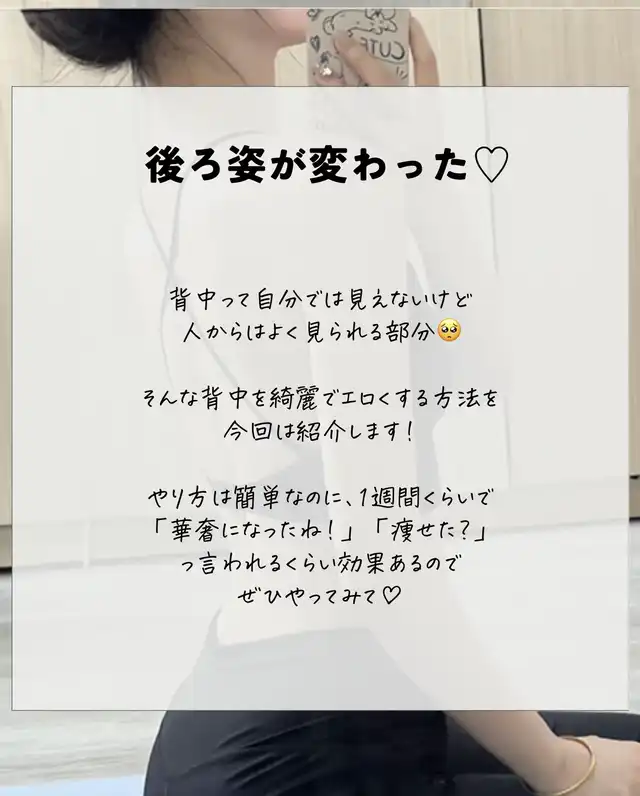 CUTE
後ろ姿が変わった♡
背中って自分では見えないけど
人からはよく見られる部分🥺
そんな背中を綺麗でエロくする方法を
今回は紹介します!
やり方は簡単なのに、1週間くらいで
「華奢になったね!」「痩せた?」
っ言われるくらい効果あるので
ぜひやってみて♡